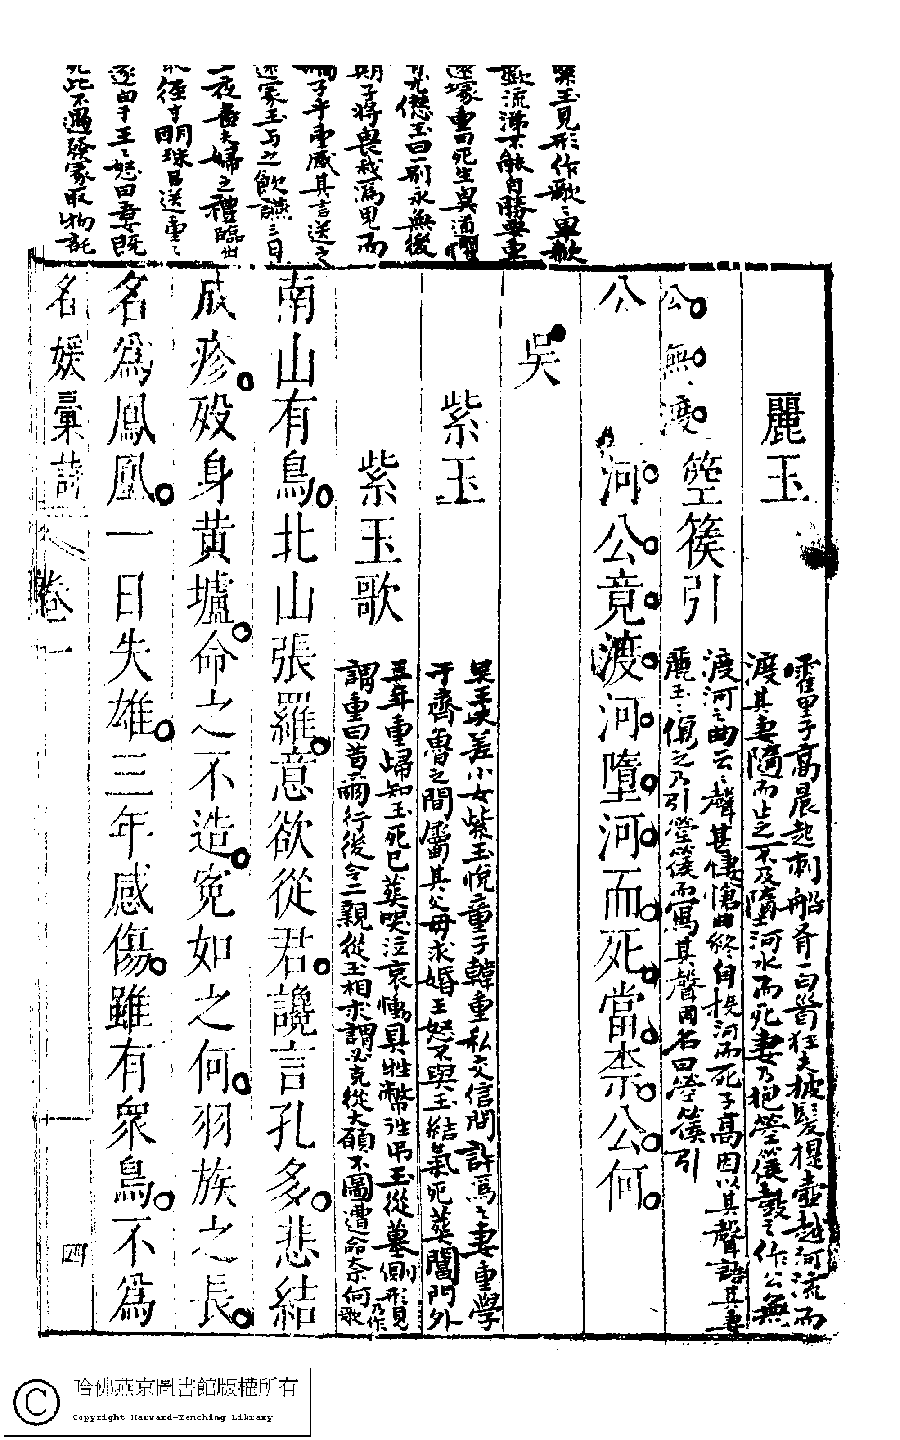 麗玉
霍里子高晨起刺船有一白首狂夫披髮提壺越河流而
渡其妻隨而止之不及墮河水而死妻乃抱箜篌鼓之作公無
渡河之曲云云聲甚悽愴曲終自投河而死子高因以其聲語其妻
麗玉麗玉傷之乃引箜篌而寫其聲因名曰箜篌引
箜篌引
公無渡
公
河公竟渡河墮河而死當柰公何
吳
紫玉
吳王夫差小女紫玉悅童子韓重私交信問許為之妻重學
于齊魯之間屬其父母求婚王怒不與玉結氣死葬閶門外
三年重歸知玉死已葬哭泣哀慟具牲幣往吊玉從墓側形見
謂重曰昔爾行後令二親從王相求謂必克從大願不圖遭命奈何
乃作歌
紫玉歌
南山有鳥北山張羅意欲從君讒言孔多悲結
成疹歿身黃壚命之不造冤如之何羽族之長
名為鳳凰一日失雄三年感傷雖有眾鳥不為
名媛彙詩
卷一
四
紫玉見形作歌歌
歔流涕不能自勝要重
還塚重曰死生異道懼
有尤愆玉曰一別永無後
期子將畏我為鬼而
禍子乎重感其言送之
還塚玉與之飲讌三日
三夜盡夫婦之禮臨出
取徑寸明珠呂送重重
遂白于王王怒曰吾女既
死此不過發塚取物託
哈佛燕京圖書館版權所有
Copyright Harvard-Yenching Library